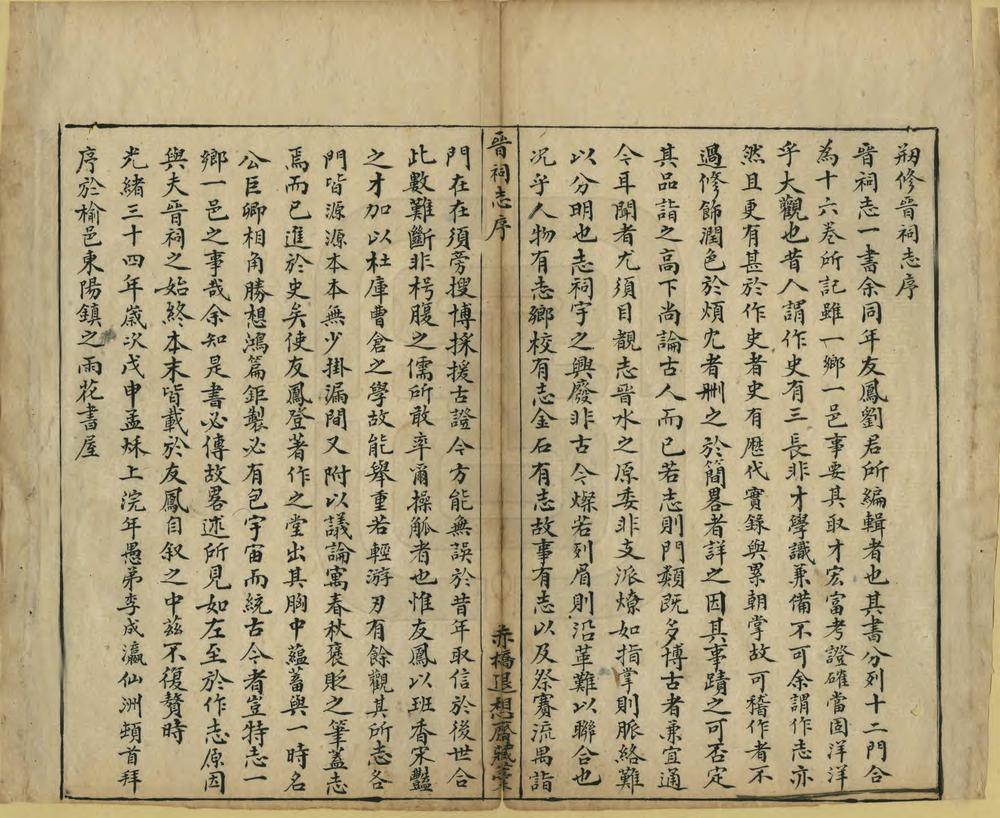 刱修晋祠志序
晋祠志一書余同年友鳳劉君所編輯者也其書分列十二門合
為十六卷所記雖一鄉一邑事要其取才宏富考證確當固洋洋
乎大觀也昔人謂作史有三長非才學識兼備不可余謂作志亦
然且更有甚於作史者史有歷代實錄與累朝掌故可稽作者不
過修飾潤色於煩冗者刪之於簡畧者詳之因其事蹟之可否定
其品詣之高下尚論古人而已若志則門類既多博古者兼宜通
今耳聞者尤須目覩志晋水之原委非支派燎如指掌則脈絡難
以分明也志祠宇之興廢非古今燦若列眉則沿革難以聯合也
况乎人物有志鄉校有志金石有志故事有志以及祭賽流寓諸
晋祠志序
赤橋退想齋藏藁
門在在須旁搜博採援古證今方能無誤於昔年取信於後世合
此數難斷非枵腹之儒所敢率爾操觚者也惟友鳳以班香宋豔
之才加以杜庫曹倉之學故能舉重若輕游刃有餘觀其所志各
門皆源源本本無少掛漏間又附以議論寓春秋襃貶之筆蓋志
焉而已進於史矣使友鳳登著作之堂出其胸中蘊蓄與一時名
公巨卿相角勝想鴻篇鉅製必有包宇宙而統古今者豈特志一
鄉一邑之事哉余知是書必傳故畧述所見如左至於作志原因
與夫晋祠之始終本末皆載於友鳳自叙之中茲不復贅時
光緒三十四年歲次戊申孟秌上浣年愚弟李成瀛仙洲頓首拜
序於榆邑東陽鎮之雨花書屋